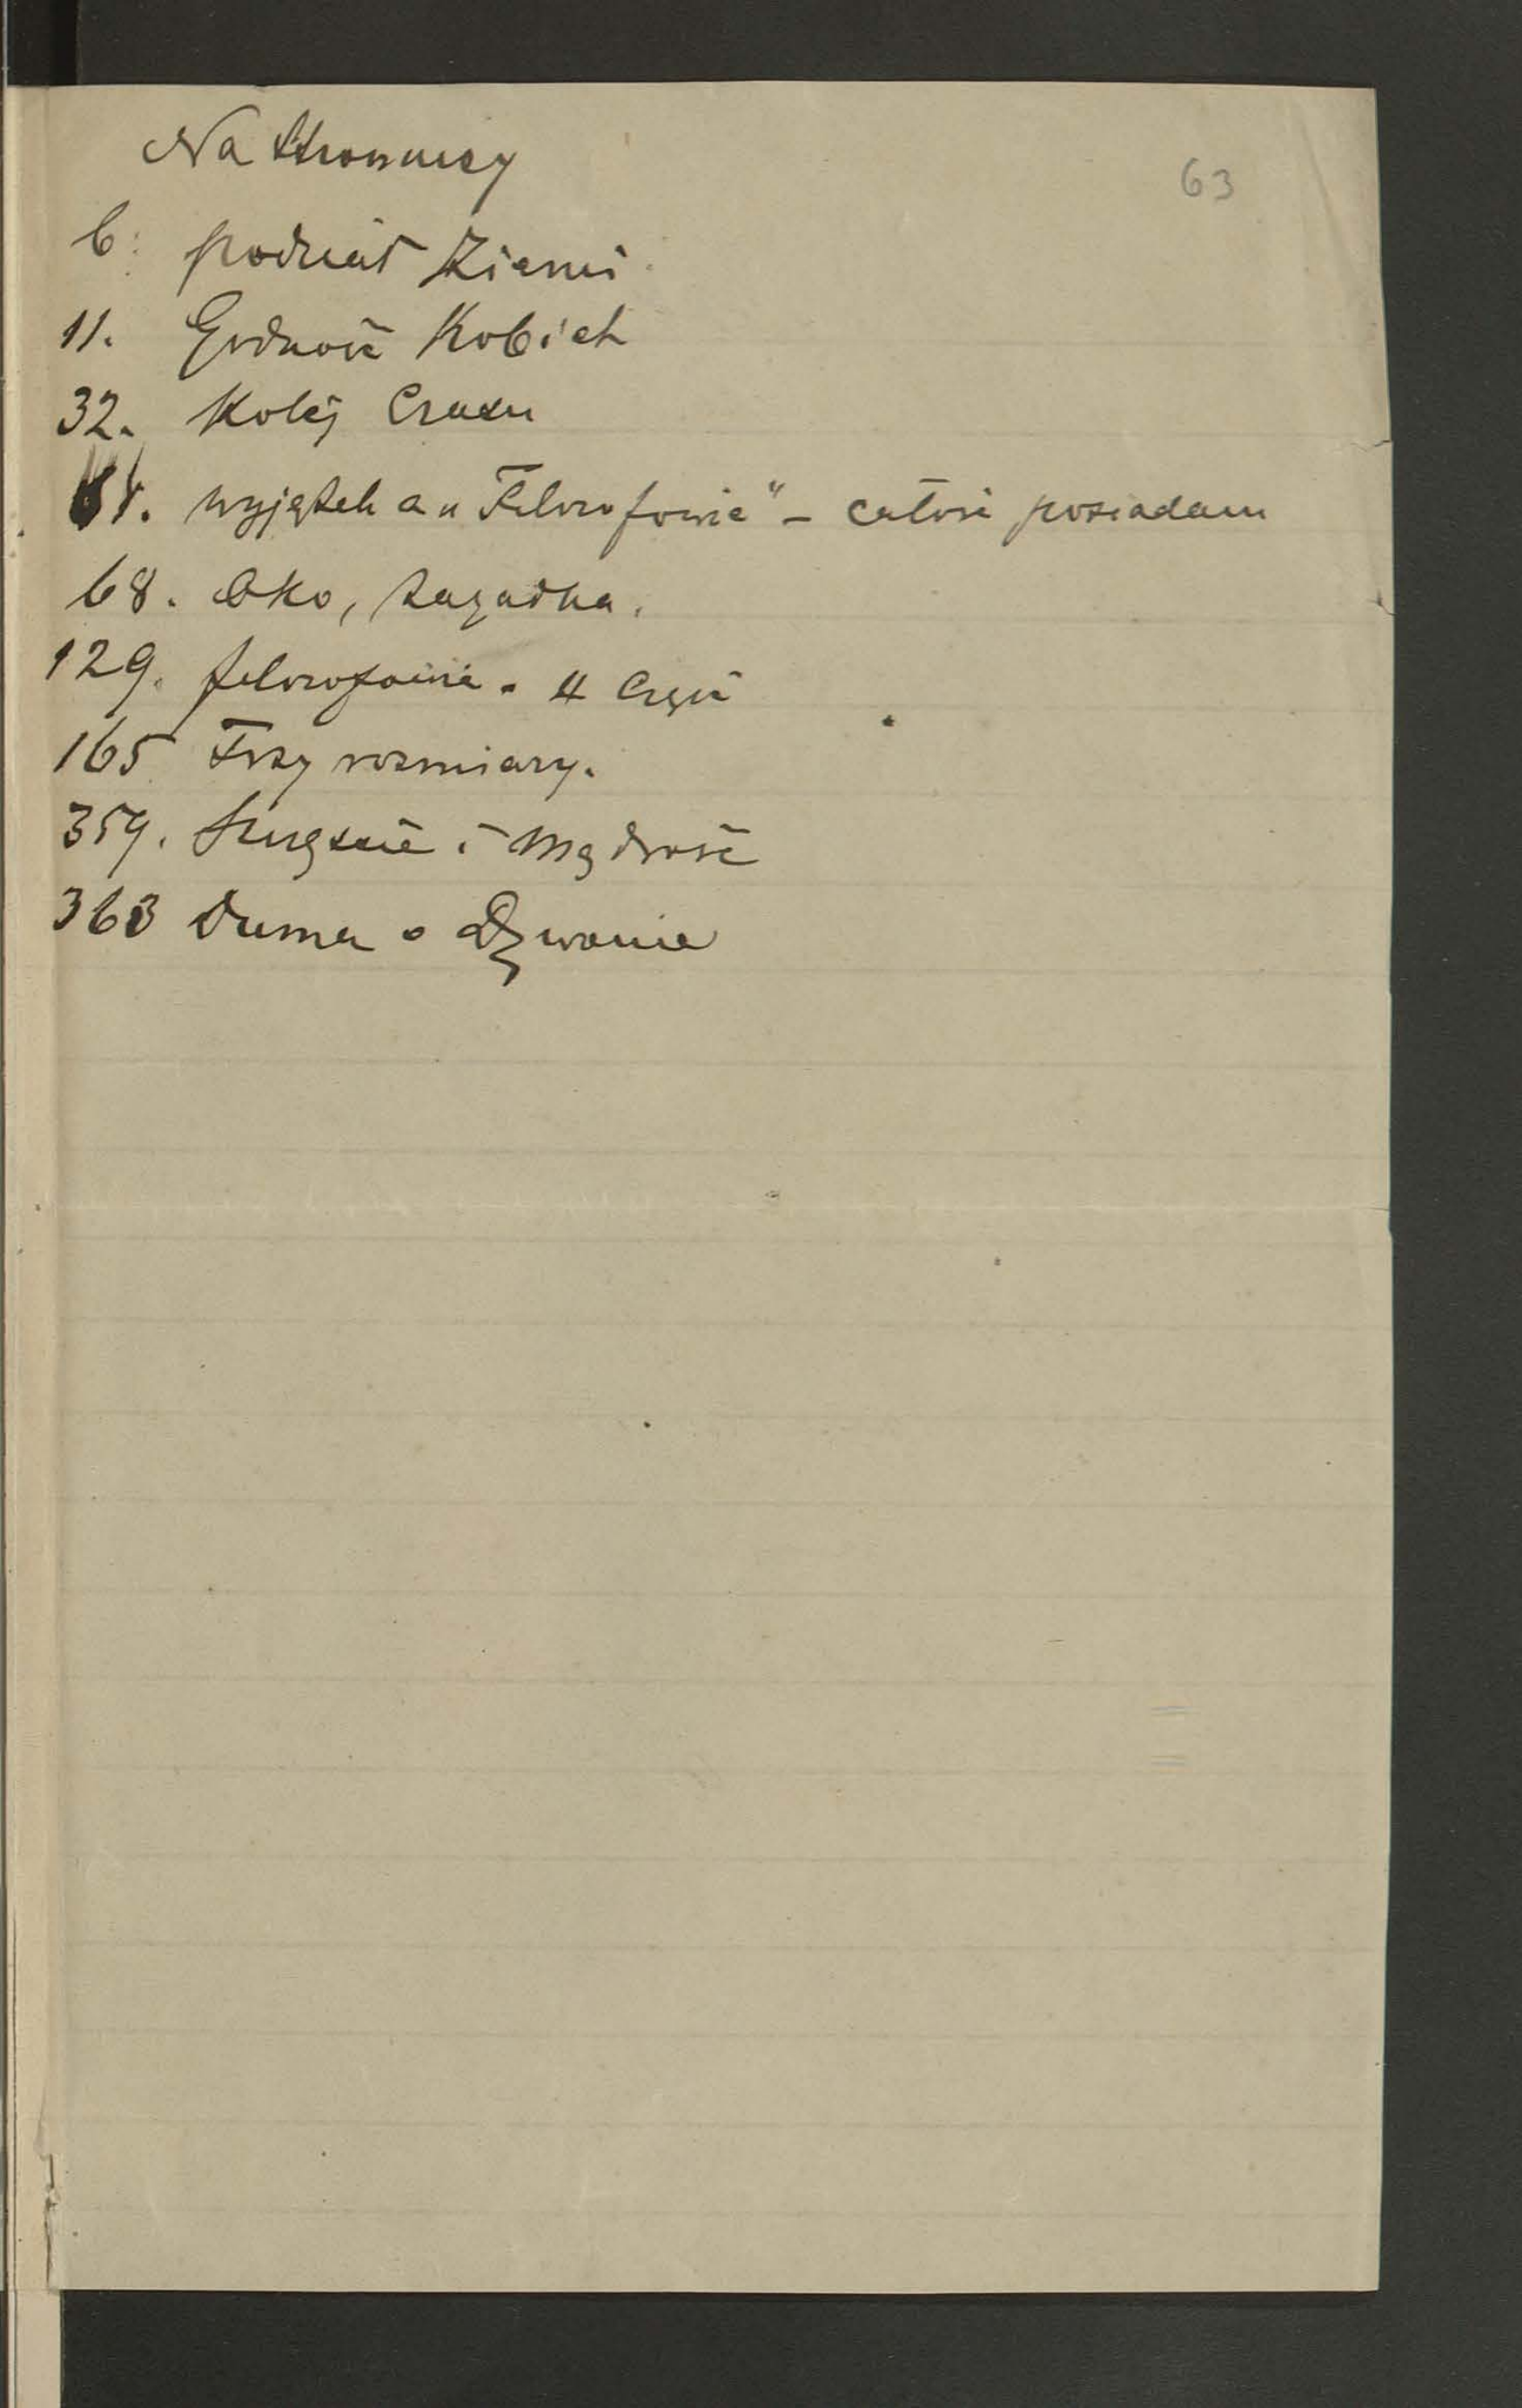 Na stronnicy
63
6. podział Ziemi
11. Godność Kobiet
32. Kolej Czasu
61. wyjątek z „Filozofowie" – całość posiadam
68. Oko, zagadka.
129. filozofowie. II Część
165 Trzy rozmiary.
359. Szczęście i Mądrość
363 Duma o Dzwonie